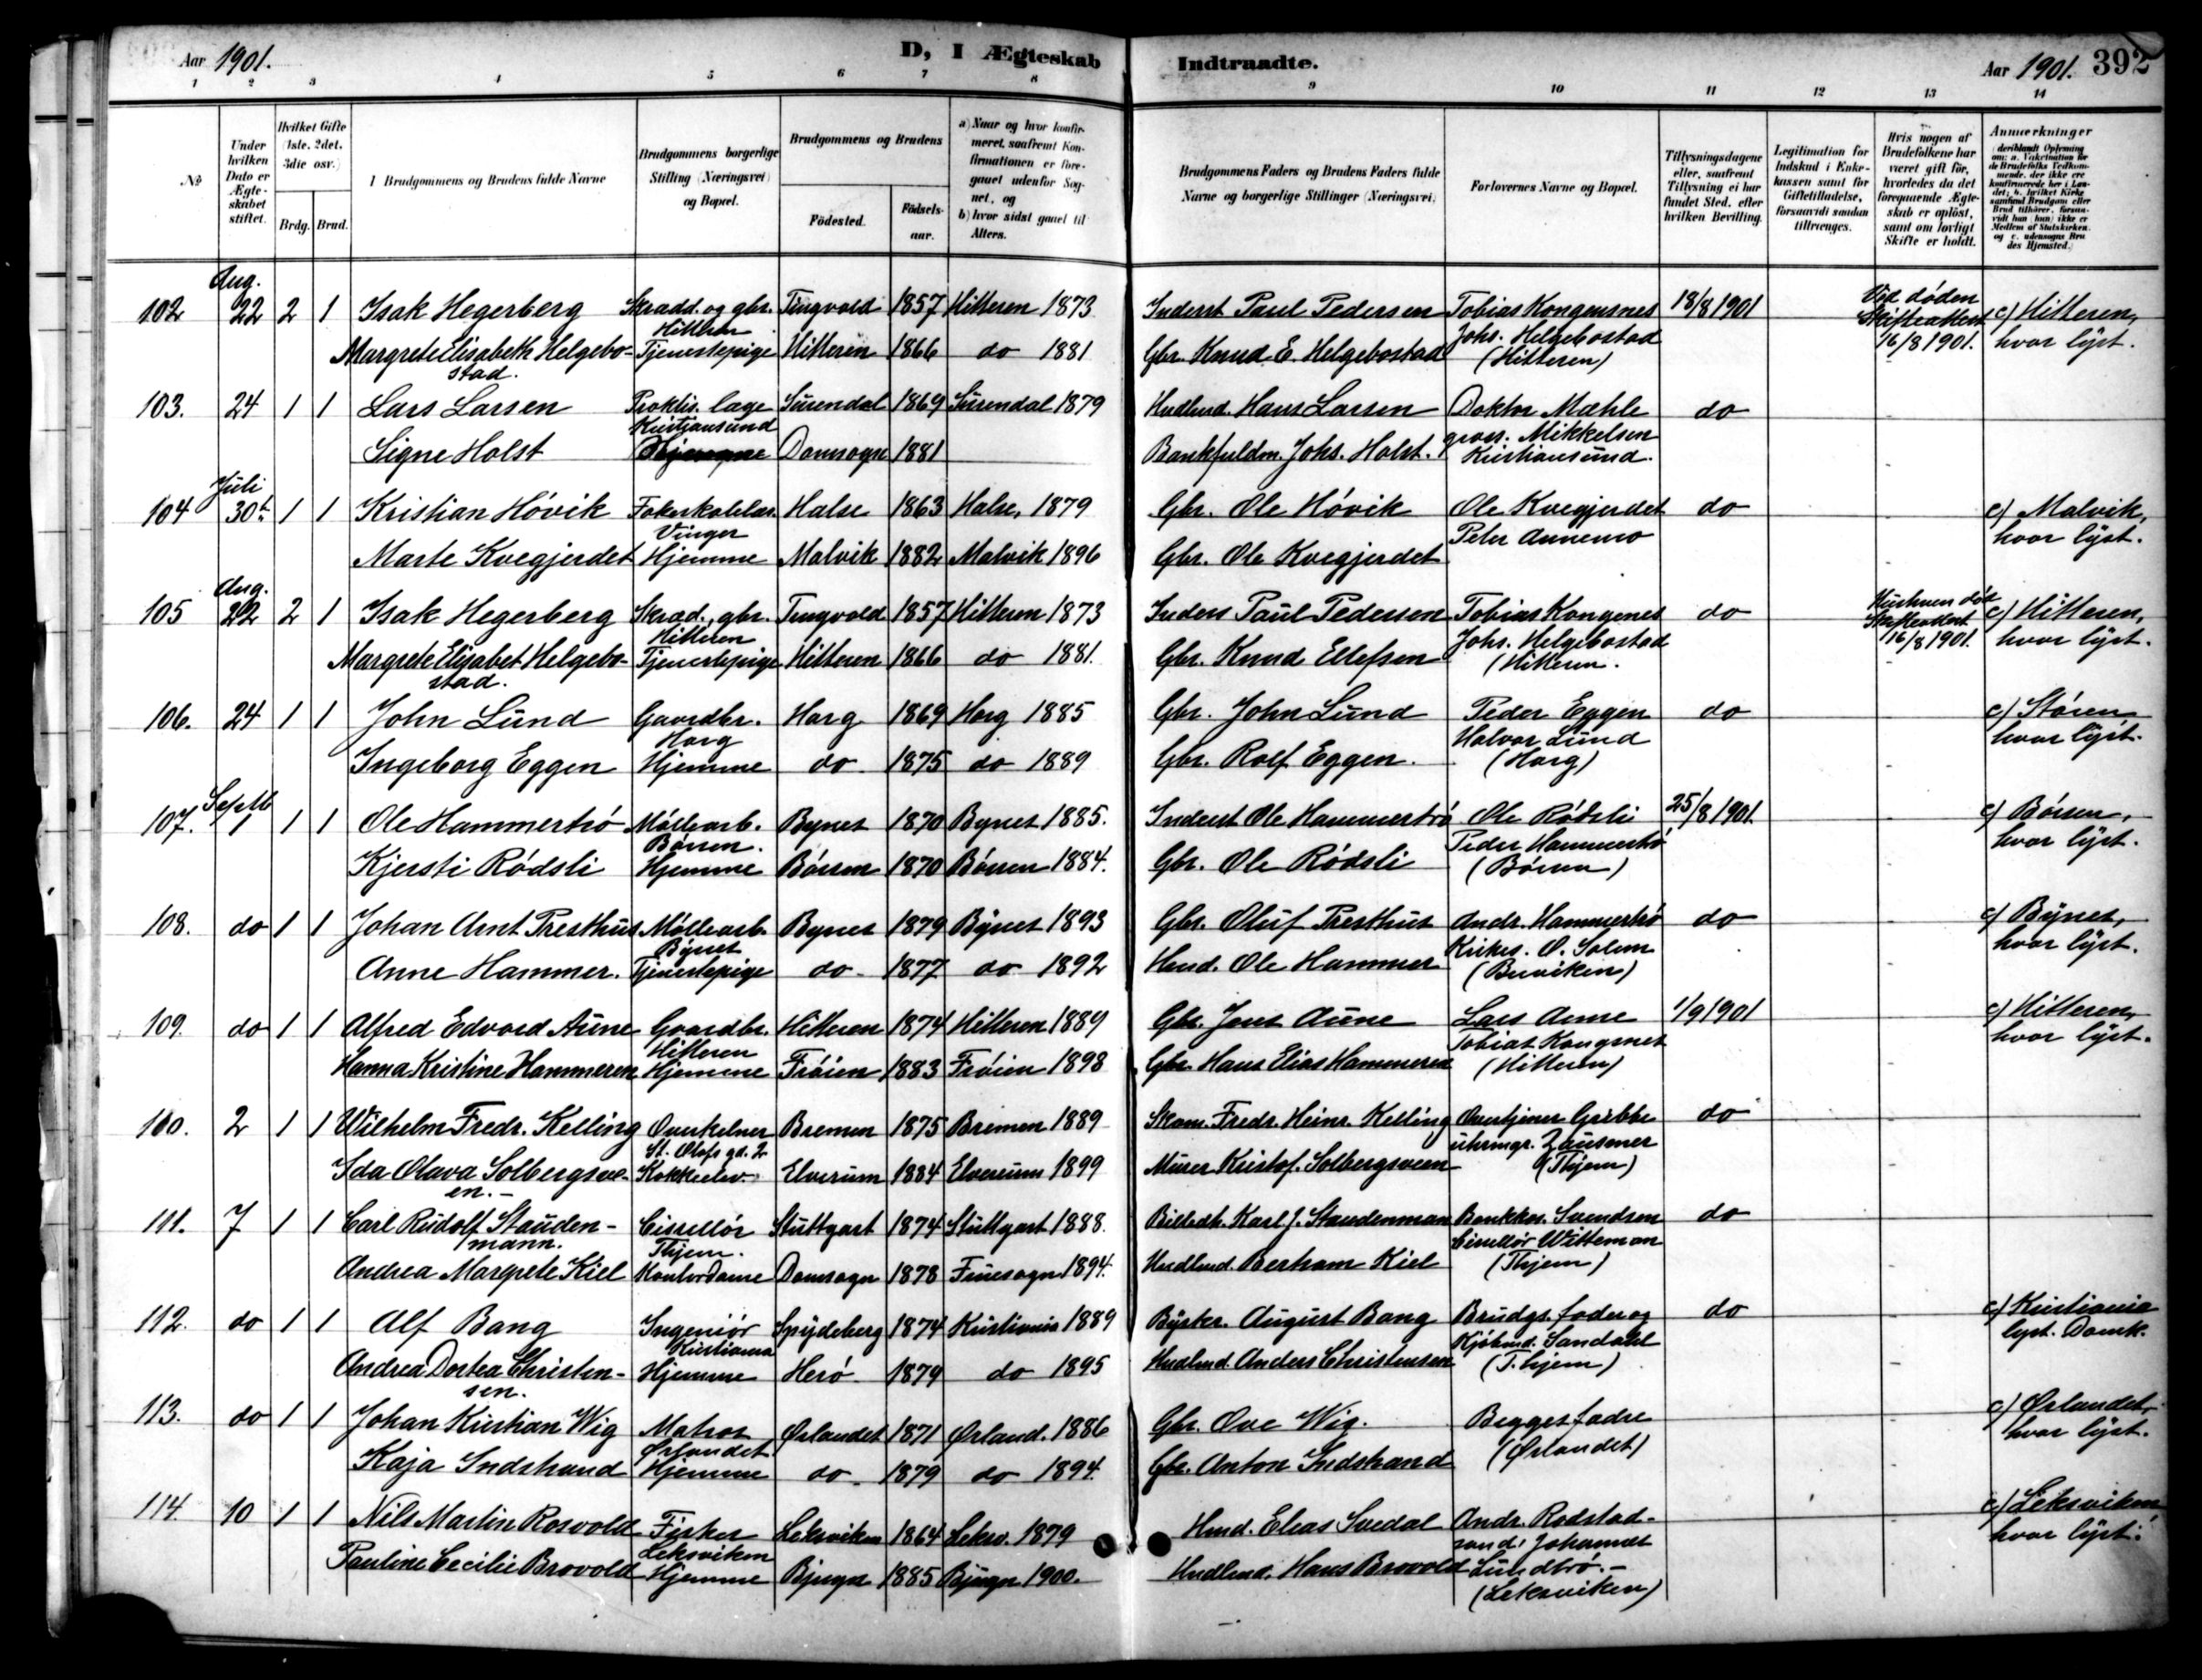 Aar 1901. D, I Ægteskab Indtraadte. Aar 1901. 392
1 2 3 4 5 6 7 8 9 10 11 12 13 14
№
Under hvilken Dato er Ægteskabet stiftet.
Hvilket Gifte (1ste, 2det, 3die osv.)
Brdg. Brud.
1 Brudgommens og Brudens fulde Navne
Brudgommens borgerlige Stilling (Næringsvei) og Bopæl.
Brudgommens og Brudens
Fødested.
Fødselsaar.
a) Naar og hvor konfirmeret, saafremt Konfirmationen er foregaaet udenfor Sognet, og
b) hvor sidst gaaet til Alters.
Brudgommens Faders og Brudens Faders fulde Navne og borgerlige Stillinger (Næringsvei)
Forlovernes Navne og Bopæl.
Tillysningsdagene eller, saafremt Tillysning ei har fundet Sted, efter hvilken Bevilling.
Legitimation for Indskud i Enkekassen samt for Giftetilladelse, forsaavidt saadan tiltrænges.
Hvis nogen af Brudefolkene har været gift før, hvorledes da det foregaaende Ægteskab er opløst, samt om lovligt Skifte er holdt.
Anmærkninger (deriblandt Oplysning om: a. Vakcination for de Brudefolks Vedkommende, der ikke ere konfirmerede her i Landet; b. hvilket Kirkesamfund Brudgom eller Brud tilhører, forsaavidt han (hun) ikke er Medlem af Statskirken, og c. udensogns Brudes Hjemsted.)
Aug.
102 22 2 1 Isak Hegerberg Skradd. og gbr. Tingvold 1857 Hitteren 1873 Inderst Paul Pedersen Tobias Kongensnes 18/8 1901 Ved døden c) Hitteren,
Hitteren Johs. Helgebostad Skifteattest hvor lyst.
Margrete Elisabeth Helgebo- Tjenestepige Hitteren 1866 do 1881 Gbr. Knud E. Helgebostad (Hitteren) 16/8 1901.
stad.
103. 24 1 1 Lars Larsen Praktis. læge Surendal 1869 Surendal 1879 Hndlend. Hans Larsen Doktor Mæhle do
Kristiansund gross. Mikkelsen
Signe Holst Domsogn 1881 Bankfuldm. Johs. Holst. Kristiansund.
Juli
104 30te 1 1 Kristian Høvik Halse 1863 Halse, 1879 Gbr. Ole Høvik Ole Kvegjerdet do c) Malvik,
Vinger Peter Annemo hvor lyst.
Marte Kvegjerdet Hjemme Malvik 1882 Malvik 1896 Gbr. Ole Kvegjerdet
Aug.
105 22 2 1 Isak Hegerberg Skræd., gbr. Tingvold 1857 Hitteren 1873 Inders Paul Pedersen Tobias Kongenes do Hustruen død c) Hitteren,
Hitteren Johs. Helgebostad Skifteattest hvor lyst.
Margrete Elisabet Helgebo- Tjenestepige Hitteren 1866 do 1881. Gbr. Knud Ellefsen (Hitteren. 16/8 1901.
stad.
106. 24 1 1 John Lund Gaardbr. Horg 1869 Horg 1885 Gbr. John Lund Peder Eggen do c) Støren
Horg Halvor Lund hvor lyst.
Ingeborg Eggen Hjemme do 1875 do 1889 Gbr. Rolf Eggen. (Horg)
Septb
107. 1 1 1 Ole Hammertrø Møllearb. Bynes 1870 Bynes 1885. Inderst Ole Hammertrø Ole Rødsli 25/8 1901. c) Børsen,
Børsen. Peder Hammertrø hvor lyst.
Kjersti Rødsli Hjemme Børsen 1870 Børsen 1884. Gbr. Ole Rødsli (Børsen)
108. do 1 1 Johan Arnt Presthus Møllearb. Bynes 1879 Bynes 1893 Gbr. Oluf Presthus Andr. Hammertrø do c) Bynes,
Bynes Kirkes. O. Solem hvor lyst.
Anne Hammer. Tjenestepige do 1877 do 1892 Hmd. Ole Hammer (Buviken)
109. do 1 1 Alfred Edvard Aune Gaardbr. Hitteren 1874 Hitteren 1889 Gbr. Jens Aune Lars Aune 1/9 1901 c) Hitteren,
Hitteren Tobias Kongsnes hvor lyst.
Hanna Kristine Hammeren Hjemme Frøien 1883 Frøien 1898 Gbr. Hans Elias Hammeren (Hitteren)
110. 2 1 1 Wilhelm Fredr. Kelling Overkelner Bremen 1875 Bremen 1889 Skom. Fredr. Heinr. Kelling Overtjener Gribbe do
St. Olafs gd. 2 uhrmgr. Zausmer
Ida Olava Solbergsve- Kokkeelev. Elverum 1884 Elverum 1899 Murer Kristof. Solbergsveen (Thjem)
en.
111. 7 1 1 Carl Rudolf Stauden- Cisellør Stuttgart 1874 Stuttgart 1888. Billedh. Karl J. Staudenman Bankkas. Svendsen do
mann. Thjem. Cisellør Witteman
Andrea Margrete Kiel Kontordame Domsogn 1878 Fruesogn 1894. Hndlend. Berham Kiel (Thjem)
112. do 1 1 Alf Bang Ingeniør Spydeberg 1874 Kristiania 1889 August Bang Brudgs. fader og do c) Kristiania
Kristiania Kjøbmd. Sandahl lyst. Domk.
Andrea Dortea Christen- Hjemme Herø 1879 do 1895 Hndlend. Anders Christensen (T.hjem)
sen.
113. do 1 1 Johan Kristian Wig Matros Ørlandet 1871 Ørland. 1886 Gbr. Ove Wig. Begges fædre c) Ørlandet,
Ørlandet (Ørlandet) hvor lyst.
Kaja Indstrand Hjemme do 1879 do 1894. Gbr. Anton Indstrand
114. 10 1 1 Nils Martin Rosvold Fisker Leksviken 1864 Leksv. 1879 Hmd. Elias Svedal Andr. Rødstad- c) Leksviken
Leksviken sand, Johannes hvor lyst.
Pauline Cecilie Brovold Hjemme Bjugn 1885 Bjugn 1900. Hndlend. Hans Brovold Lundtrø.
(Leksviken)